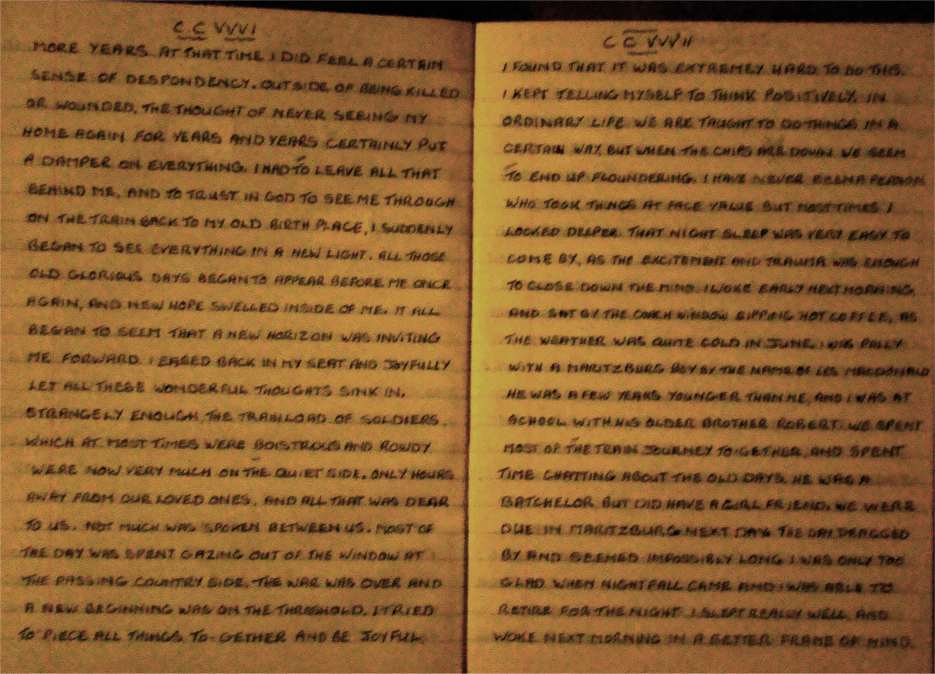 CCVVVI
MORE YEARS. AT THAT TIME I DID FEEL A CERTAIN
SENSE OF DESPONDENCY. OUTSIDE OF BEING KILLED
OR WOUNDED, THE THOUGHT OF NEVER SEEING MY
HOME AGAIN FOR YEARS AND YEARS CERTAINLY PUT
A DAMPER ON EVERYTHING. I HAD TO LEAVE ALL THAT
BEHIND ME, AND TO TRUST IN GOD TO SEE ME THROUGH
ON THE TRAIN BACK TO MY OLD BIRTH PLACE, I SUDDENLY
BEGAN TO SEE EVERYTHING IN A NEW LIGHT. ALL THOSE
OLD GLORIOUS DAYS BEGAN TO APPEAR BEFORE ME ONCE
AGAIN, AND NEW HOPE SWELLED INSIDE OF ME. IT ALL
BEGAN TO SEEM THAT A NEW HORIZON WAS INVITING
ME FORWARD. I EASED BACK IN MY SEAT AND JOYFULLY
LET ALL THESE WONDERFUL THOUGHTS SINK IN.
STRANGELY ENOUGH, THE TRAINLOAD OF SOLDIERS,
WHICH AT MOST TIMES WERE BOISTROUS AND ROWDY
WERE NOW VERY MUCH ON THE QUIET SIDE. ONLY HOURS
AWAY FROM OUR LOVED ONES, AND ALL THAT WAS DEAR
TO US. NOT MUCH WAS SPOKEN BETWEEN US. MOST OF
THE DAY WAS SPENT GAZING OUT OF THE WINDOW AT
THE PASSING COUNTRY SIDE. THE WAR WAS OVER AND
A NEW BEGINNING WAS ON THE THRESHOLD. I TRIED
TO PIECE ALL THINGS TO-GETHER AND BE JOYFUL.
CCVVVII
I FOUND THAT IT WAS EXTREMELY HARD TO DO THIS.
I KEPT TELLING MYSELF TO THINK POSITIVELY. IN
ORDINARY LIFE WE ARE TAUGHT TO DO THINGS IN A
CERTAIN WAY, BUT WHEN THE CHIPS ARE DOWN WE SEEM
TO END UP FLOUNDERING. I HAVE NEVER BEEN A PERSON
WHO TOOK THINGS AT FACE VALUE BUT MOST TIMES I
LOOKED DEEPER. THAT NIGHT SLEEP WAS VERY EASY TO
COME BY, AS THE EXCITEMENT AND TRAUMA WAS ENOUGH
TO CLOSE DOWN THE MIND. I WOKE EARLY NEXT MORNING,
AND SAT BY THE COACH WINDOW SIPPING HOT COFFEE, AS
THE WEATHER WAS QUITE COLD IN JUNE. I WAS PALLY
WITH A MARITZBURG BOY BY THE NAME OF LES MACDONALD
HE WAS A FEW YEARS YOUNGER THAN ME, AND I WAS AT
SCHOOL WITH HIS OLDER BROTHER ROBERT. WE SPENT
MOST OF THE TRAIN JOURNEY TO-GETHER, AND SPENT
TIME CHATTING ABOUT THE OLD DAYS. HE WAS A
BATCHELOR BUT DID HAVE A GIRL FRIEND. WE WERE
DUE IN MARITZBURG NEXT DAY. THE DAY DRAGGED
BY AND SEEMED IMPOSSIBLY LONG I WAS ONLY TOO
GLAD WHEN NIGHT FALL CAME AND I WAS ABLE TO
RETIRE FOR THE NIGHT. I SLEPT REALLY WELL AND
WOKE NEXT MORNING IN A BETTER FRAME OF MIND.